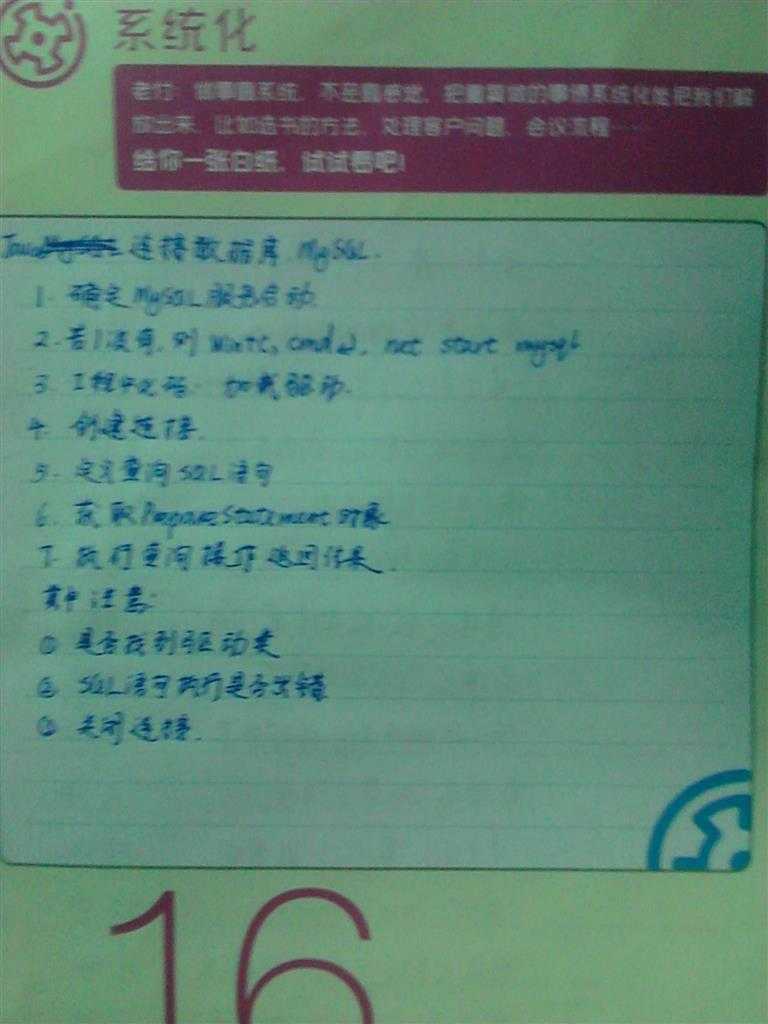 系统化
老付：做事靠系统，不是靠感觉，把重复做的事情系统化能把我们解
放出来，比如选书的方法，处理客户问题，会议流程……
给你一张白纸，试试看吧！
Java 连接数据库 MySQL.
1. 确定MySQL服务启动.
2. 若没有，则 win+r, cmd↵, net start mysql
3. 工程中代码：加载驱动.
4. 创建连接.
5. 定义查询SQL语句
6. 获取PrepareStatement对象
7. 执行查询操作返回结果.
其中注意:
① 是否找到驱动类
② SQL语句执行是否出错
③ 关闭连接.
16